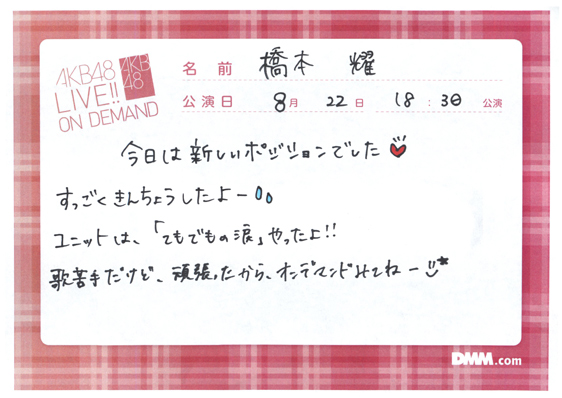 AKB48
LIVE!!
ON DEMAND
AKB
48
名前 橋本 耀
公演日 8月 22日 18:30 公演
今日は新しいポジションでした
すっごくきんちょうしたよー
ユニットは、「てもでもの涙」やったよ!!
歌苦手だけど、頑張ったから、オンデマンドみてねー
DMM.com